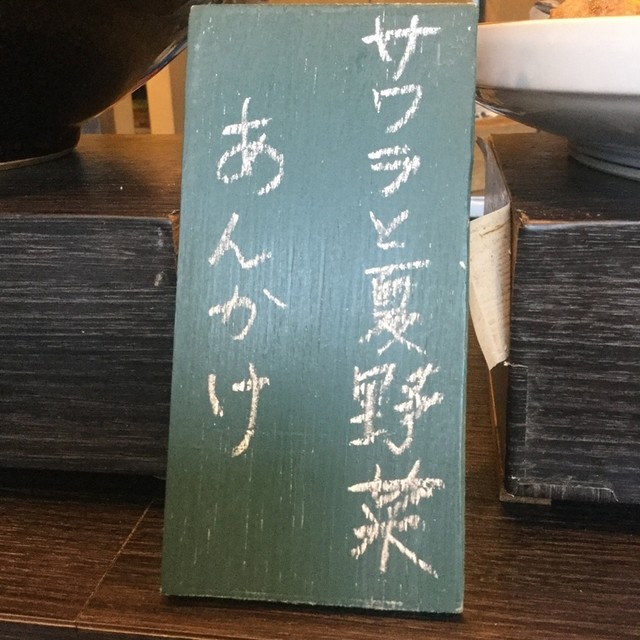 サワラと夏野菜
あんかけ